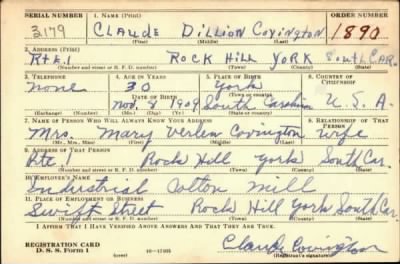 SERIAL NUMBER 1. NAME (Print) ORDER NUMBER
3179 CLAUDE DILLION COVINGTON 1890
(First) (Middle) (Last)
2. ADDRESS (Print)
RTE. 1 ROCK HILL YORK SOUTH CAR.
(Number and street or R. F. D. number) (Town) (County) (State)
3. TELEPHONE 4. AGE IN YEARS 5. PLACE OF BIRTH 6. COUNTRY OF CITIZENSHIP
none 30 York
DATE OF BIRTH (Town or county)
Nov. 8 1909 South Carolina U. S. A.
(Exchange) (No.) (Mo.) (Day) (Yr.) (State or country)
7. NAME OF PERSON WHO WILL ALWAYS KNOW YOUR ADDRESS 8. RELATIONSHIP OF THAT PERSON
Mrs. Mary Covington wife
(Mr., Mrs., Miss) (First) (Middle) (Last)
9. ADDRESS OF THAT PERSON
Rte. 1 Rock Hill York South Car.
(Number and street or R. F. D. number) (Town) (County) (State)
10. EMPLOYER'S NAME
Industrial Cotton Mill
11. PLACE OF EMPLOYMENT OR BUSINESS
Swift Street Rock Hill York South Car.
(Number and street or R. F. D. number) (Town) (County) (State)
I AFFIRM THAT I HAVE VERIFIED ABOVE ANSWERS AND THAT THEY ARE TRUE.
Claude Covington
REGISTRATION CARD
D. S. S. Form 1 (over) (Registrant's signature)